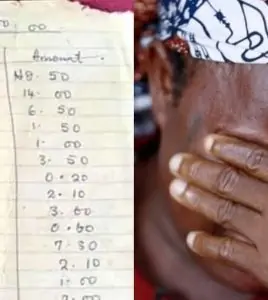 00
Amount.
14. 00
6. 50
1. 50
1. 00
3. 50
0.20
2.10
3.00
0.60
7.30
2.10
1.00